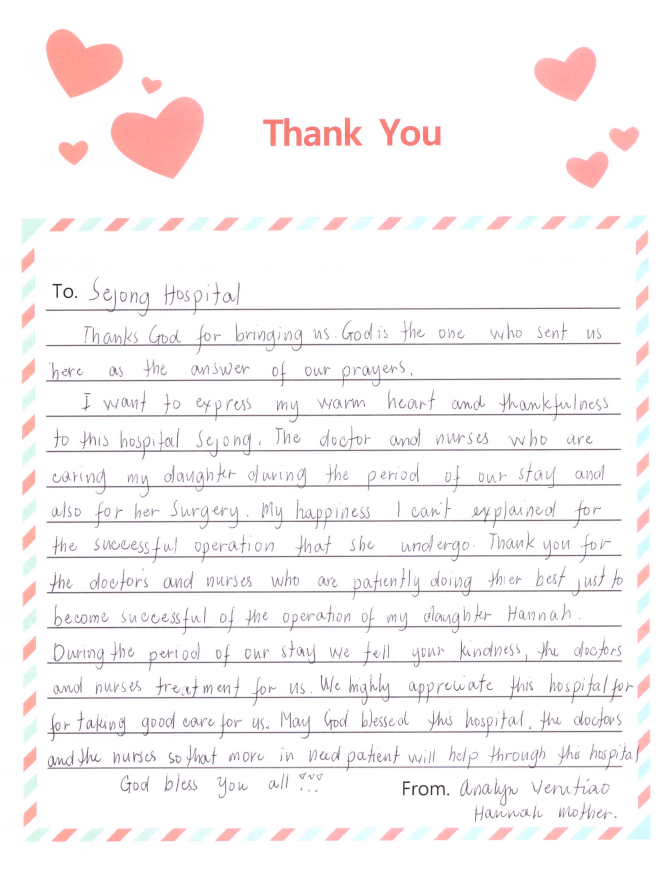 Thank You
To. Sejong Hospital
Thanks God for bringing us. God is the one who sent us
here as the answer of our prayers.
I want to express my warm heart and thankfulness
to this hospital Sejong. The doctor and nurses who are
caring my daughter during the period of our stay and
also for her Surgery. My happiness I can't explained for
the successful operation that she undergo. Thank you for
the doctors and nurses who are patiently doing thier best just to
become successful of the operation of my daughter Hannah.
During the period of our stay we fell your kindness, the doctors
and nurses treatment for us. We highly appreciate this hospital for
for taking good care for us. May God blessed this hospital, the doctors
and the nurses so that more in need patient will help through this hospital
God bless You all !!!
From. Analyn Verutiao
Hannah mother.